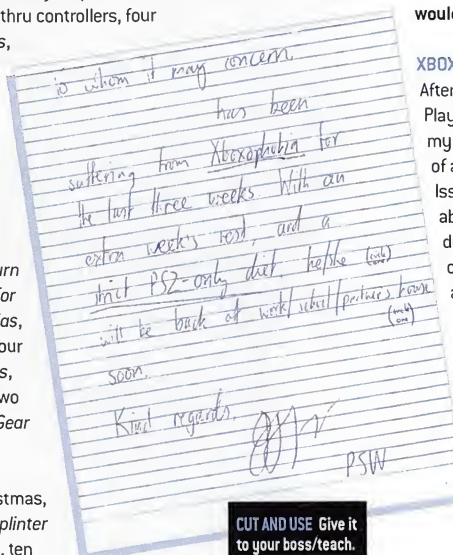 thru controllers, four
s,
urn
for
as,
our
s,
wo
Gear
stmas,
plinter
, ten
to whom it may concern.
has been
suffering from Xboxophobia for
the last three weeks. With an
extra week's rest, and a
strict PS2-only diet, he/she (tick one)
will be back at work/school/partner's house (tick one)
soon.
Kind regards,
PSW
CUT AND USE Give it
to your boss/teach.
would
XBOX
After
Play
my
of a
Iss
ab
d
c
a